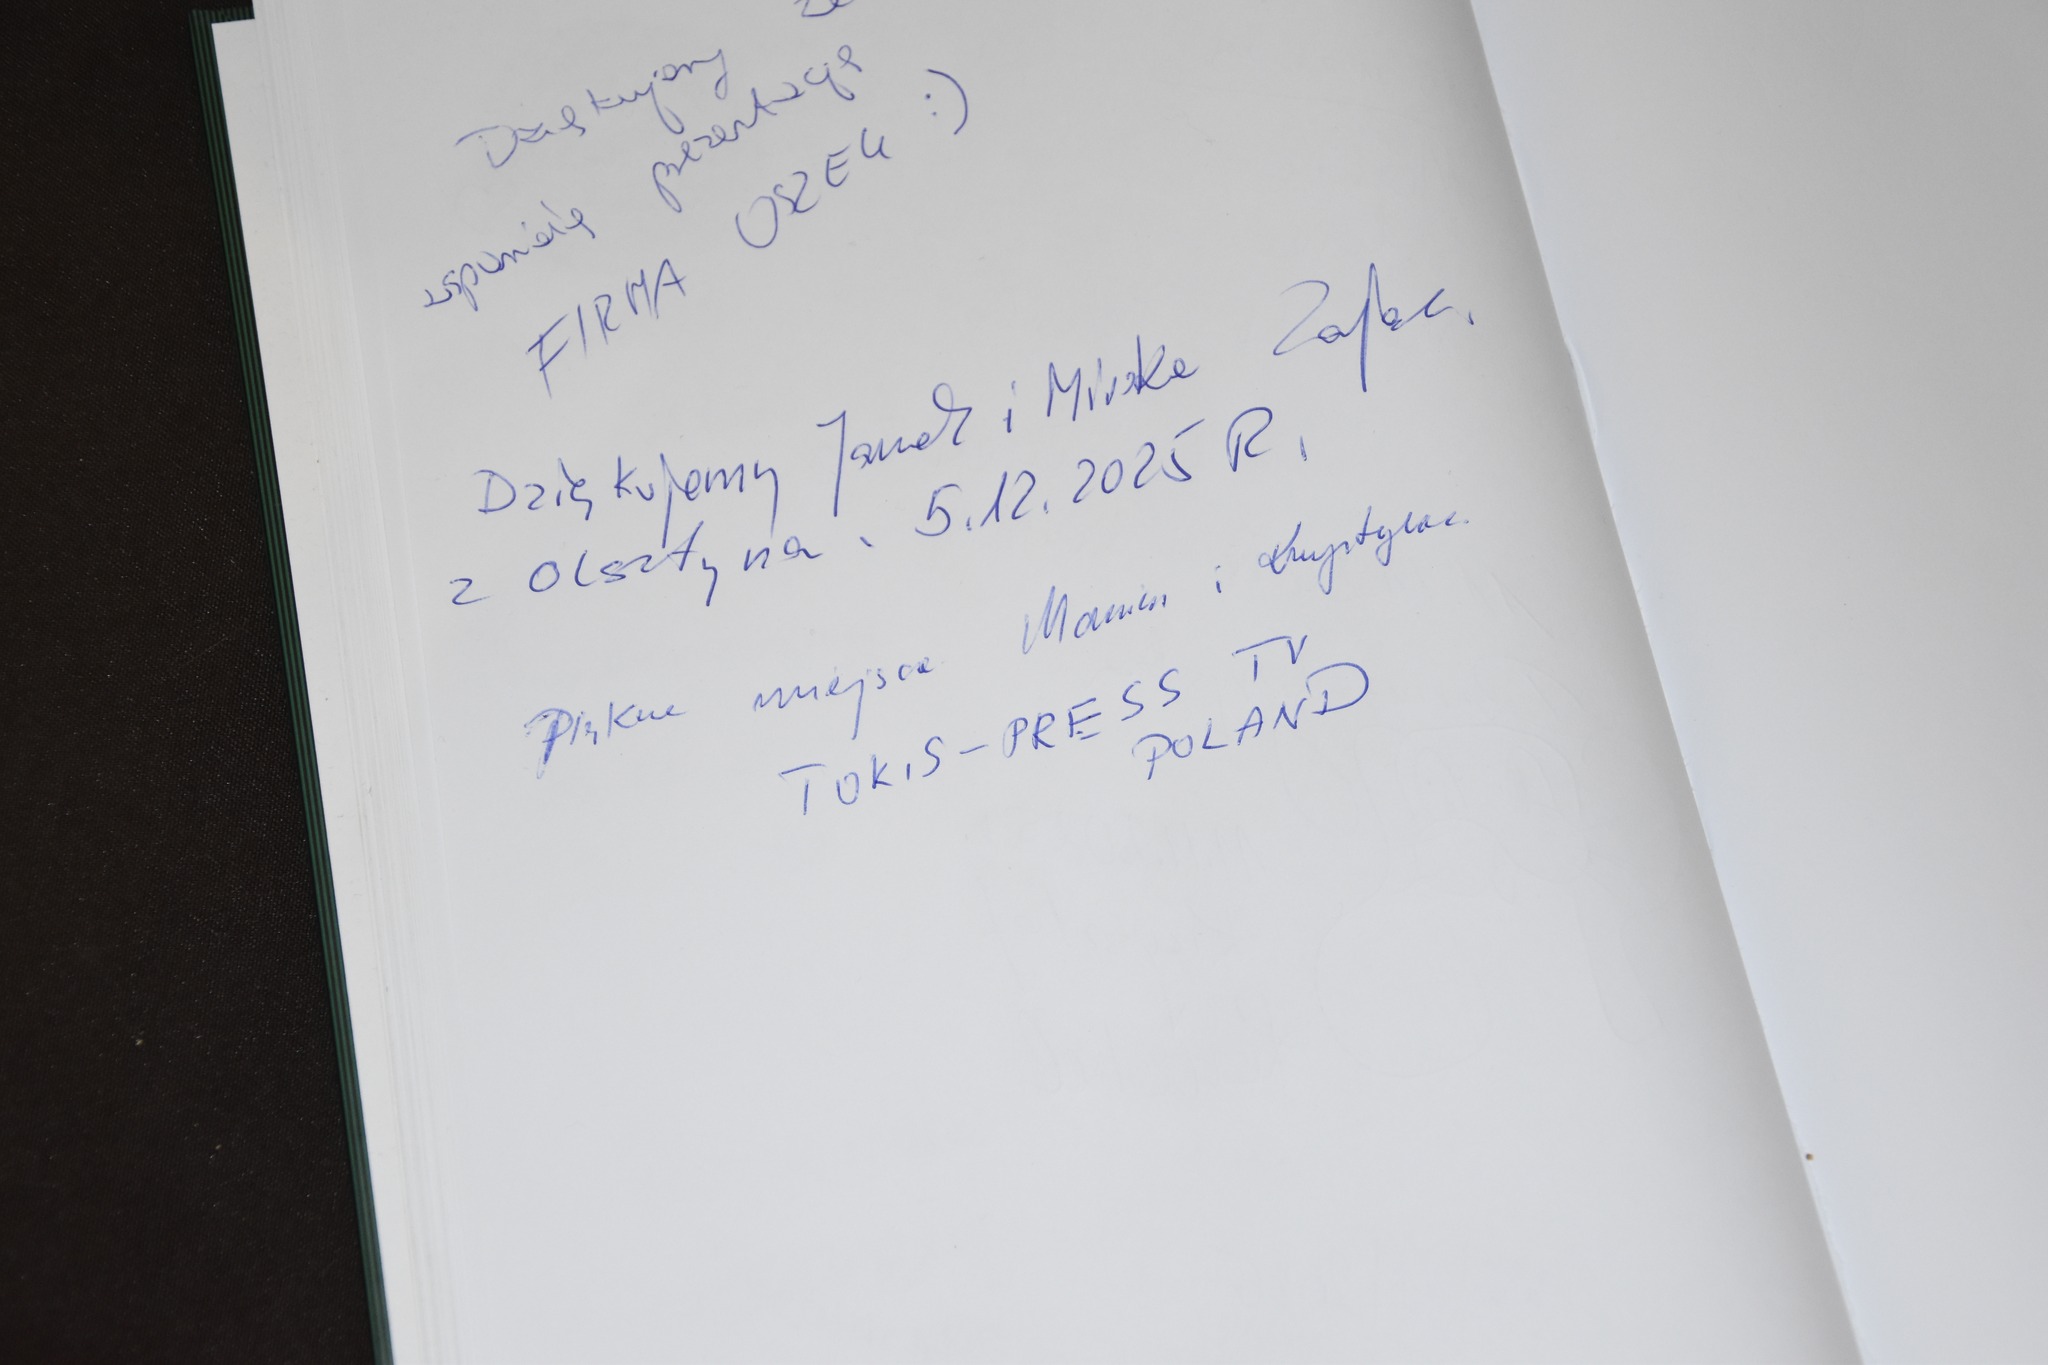 Dziękujemy za
wspaniałą prezentację
FIRMA OSZEK :)
Dziękujemy Janek i Mirka Zając.
z Olsztyna. 5.12.2025 R.
Piękne miejsce i Krystyna
TOKIS-PRESS TV
POLAND